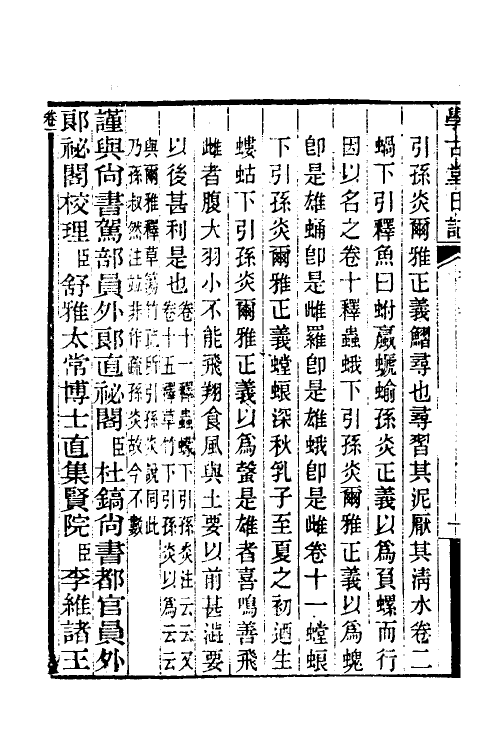 學古堂日記
引孫炎爾雅正義鰼尋也尋習其泥厭其淸水卷二
蝸下引釋魚曰蚹蠃螔蝓孫炎正義以爲負螺而行
因以名之卷十釋蟲蛾下引孫炎爾雅正義以爲蜆
卽是雄蛹卽是雌羅卽是雄蛾卽是雌卷十一螳蜋
下引孫炎爾雅正義螳蜋深秋乳子至夏之初迺生
螻蛄下引孫炎爾雅正義以爲螜是雄者喜鳴善飛
雌者腹大羽小不能飛翔食風與土要以前甚澁要
以後甚利是也卷十一釋蟲蛾下引孫炎注云云又
卷十五釋草竹下引孫炎以爲云云
與爾雅釋草篇竹疏所引孫炎說同此
乃孫叔然注並非作疏孫炎故今不數
謹與尙書駕部員外郞直祕閣臣杜鎬尙書都官員外
郞祕閣校理臣舒雅太常博士直集賢院臣李維諸王
卷